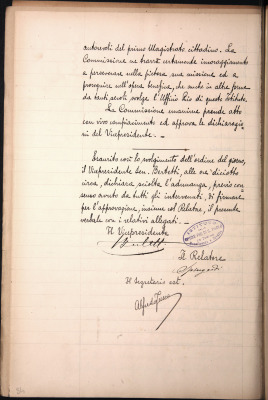 autorevoli del primo Magistrato cittadino. La
Commissione ne trarrà certamente incoraggiamento
a perseverare nella pietosa sua missione ed a
proseguire nell'opera benefica, che anche in altre forme
da tanti secoli svolge l'Ufficio Pio di questo Istituto.
La Commissione unanime prende atto
con vivo compiacimento ed approva le dichiarazio
ni del Vicepresidente. —
Esaurito così lo svolgimento dell'ordine del giorno,
il Vicepresidente Sen. Bertetti, alle ore diciotto
circa, dichiara sciolta l'adunanza, previo con
senso avuto da tutti gli intervenuti, di firmare
per l'approvazione, insieme col Relatore, il presente
verbale con i relativi allegati. —
Il Vicepresidente
Bertetti
Il Relatore
Il Segretario est.